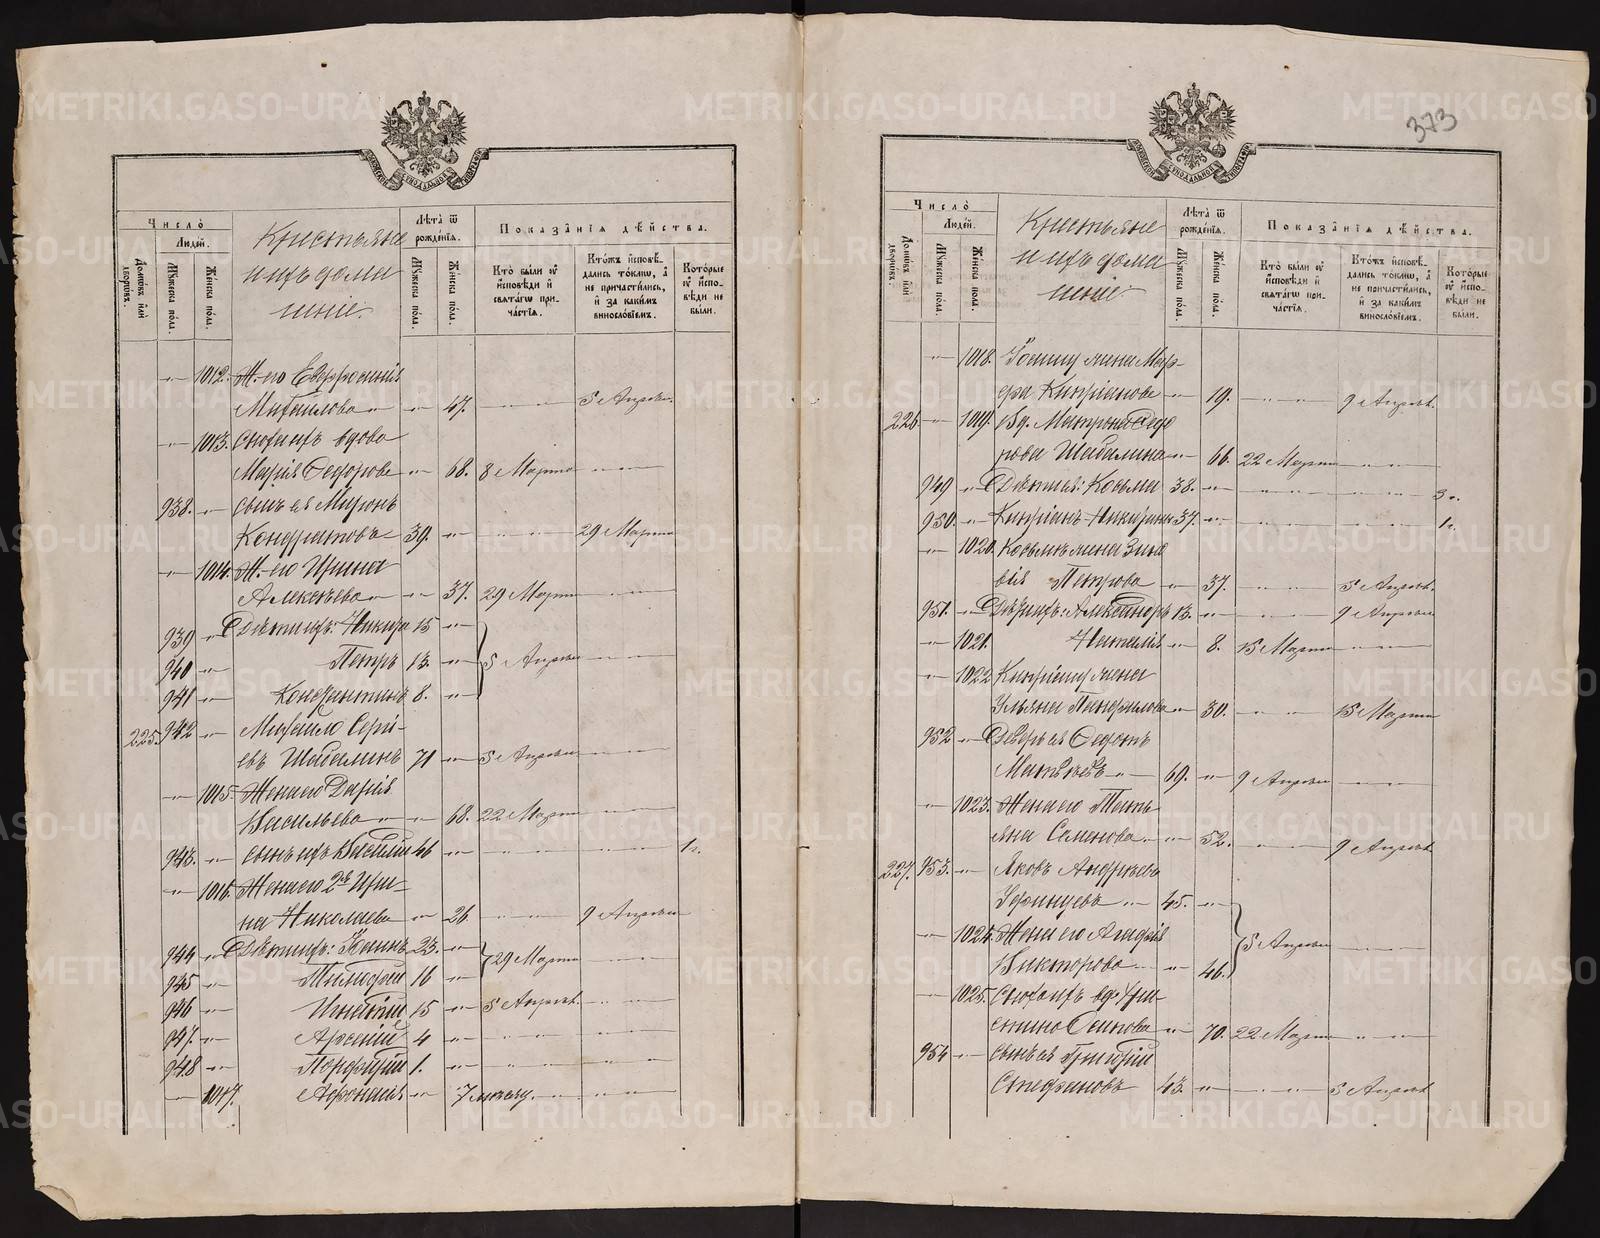 Число̀
Людей.
Домѡвъ и҆лѝ дворѡвъ.
Мꙋжеска по́ла.
Же́нска по́ла.
Крестьяне
и ихъ дома
шніе.
Лѣта̀ ѿ
рожде́нїѧ.
Мꙋжеска по́ла.
Же́нска по́ла.
Показа̑нїѧ дѣ́йства.
Кто̀ бы́ли ᲂу҆
и҆сповѣди и҆
свѧта́гѡ при-
ча́стїѧ.
Кто́жъ и҆сповѣ́-
дались то́кмѡ, а҆
не причасти́лись,
и҆ за каки́мъ
винословїемъ.
Кото́рые
ᲂу҆ и҆спо-
вѣди не
бы́ли.
1012. Ж. его Евфросинія
Михайлова 47. 5 Апрѣля.
1013. Сноха ихъ вдова
Марія Федорова 68. 8 Марта
938. сынъ ея Миронъ
Кондратовъ 39. 29 Марта
1014. Ж. его Ирина
Алексѣева 37. 29 Марта
939 Дѣти ихъ: Никита 15
940 Петръ 13. 5 Апрѣля
941 Константинъ 8.
225. 942 Михайло Серги-
евъ Шабалинъ 71 5 Апрѣля
1015. Жена его Дарія
Васильева 68. 22 Марта
943. сынъ ихъ Василій 46 1 г.
1016. Жена его 2я Ири-
на Николаева 26. 9 Апрѣля
944 Дѣти ихъ: Іоаннъ 23. 29 Марта
945 Тимофей 16
946 Игнатій 15 5 Апрѣля.
947. Арсеній 4
948 Порфирій 1.
1017. Афонасія 7 мѣсяц.
373
Число̀
Людей.
Домѡвъ и҆лѝ дворѡвъ.
Мꙋжеска по́ла.
Же́нска по́ла.
Крестьяне
и ихъ дома
шніе.
Лѣта̀ ѿ
рожде́нїѧ.
Мꙋжеска по́ла.
Же́нска по́ла.
Показа̑нїѧ дѣ́йства.
Кто̀ бы́ли ᲂу҆
и҆сповѣди и҆
свѧта́гѡ при-
ча́стїѧ.
Кто́жъ и҆сповѣ́-
дались то́кмѡ, а҆
не причасти́лись,
и҆ за каки́мъ
винословїемъ.
Кото́рые
ᲂу҆ и҆спо-
вѣди не
бы́ли.
1018. Іоанну жена Мар-
фа Кипріанова 19. 9 Апрѣл.
226. 1019. Вд. Матрона Федо
рова Шабалина 66. 22 Марта
949 Дѣти ея: Косьма 38. 3 г.
950. Кипріанъ Никитины 37. 1 г.
1020. Косьмы жена Зино
вія Петрова 37. 5 Апрѣля.
951. Дѣти ихъ: Александръ 13. 9 Апрѣля
1021. Наталія 8. 15 Марта
1022 Кипріану жена
Ульяна Панфилова 30. 15 Марта
952 Деверь ея Федотъ
Матвѣевъ 69. 9 Апрѣля
1023. Жена его Тать
яна Семенова 52. 9 Апрѣл.
227. 953. Яковъ Андреевъ
Уфинцевъ 45.
1024. Жена его Агафія 5 Апрѣля
Викторова 46.
1025. Сноха ихъ вд. Усти-
тинья Осипова 70. 22 Марта
954 сынъ ея Григорій
Стефановъ 43. 5 Апрѣл.
METRIKI.GASO-URAL.RU